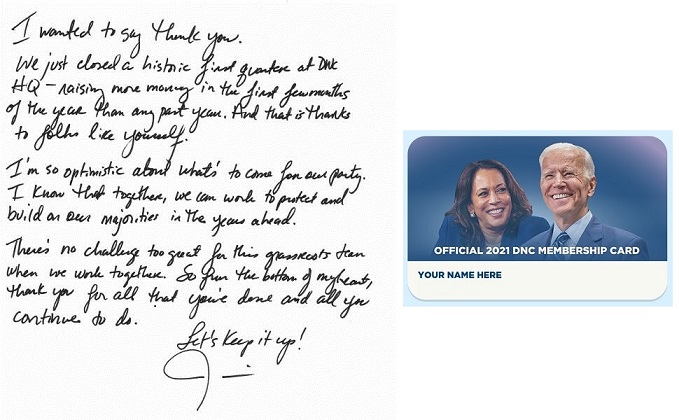 I wanted to say thank you.
We just closed a historic first quarter at DNC
HQ – raising more money in the first few months
of the year than any past year. And that is thanks
to folks like yourself.
I'm so optimistic about what's to come for our party.
I know that together, we can work to protect and
build on our majorities in the years ahead.
There's no challenge too great for this grassroots team
when we work together. So from the bottom of my heart,
thank you for all that you've done and all you
continue to do.
Let's keep it up!
OFFICIAL 2021 DNC MEMBERSHIP CARD
YOUR NAME HERE